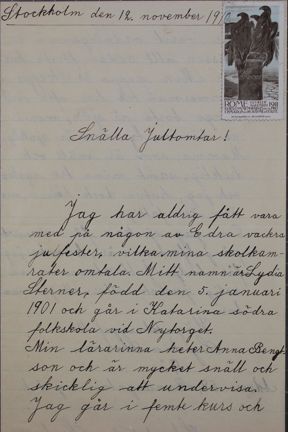 Stockholm den 12. november 19
ROME
1911
Snälla Jultomtar!
Jag har aldrig fått vara
med på någon av Edra vackra
julfester, vilka mina skolkam-
rater omtala. Mitt namn är Lydia
Sterner, född den 5. januari
1901 och går i Katarina södra
folkskola vid Nytorget.
Min lärarinna heter Anna Bengt-
son och är mycket snäll och
skicklig att undervisa.
Jag går i femte kurs och